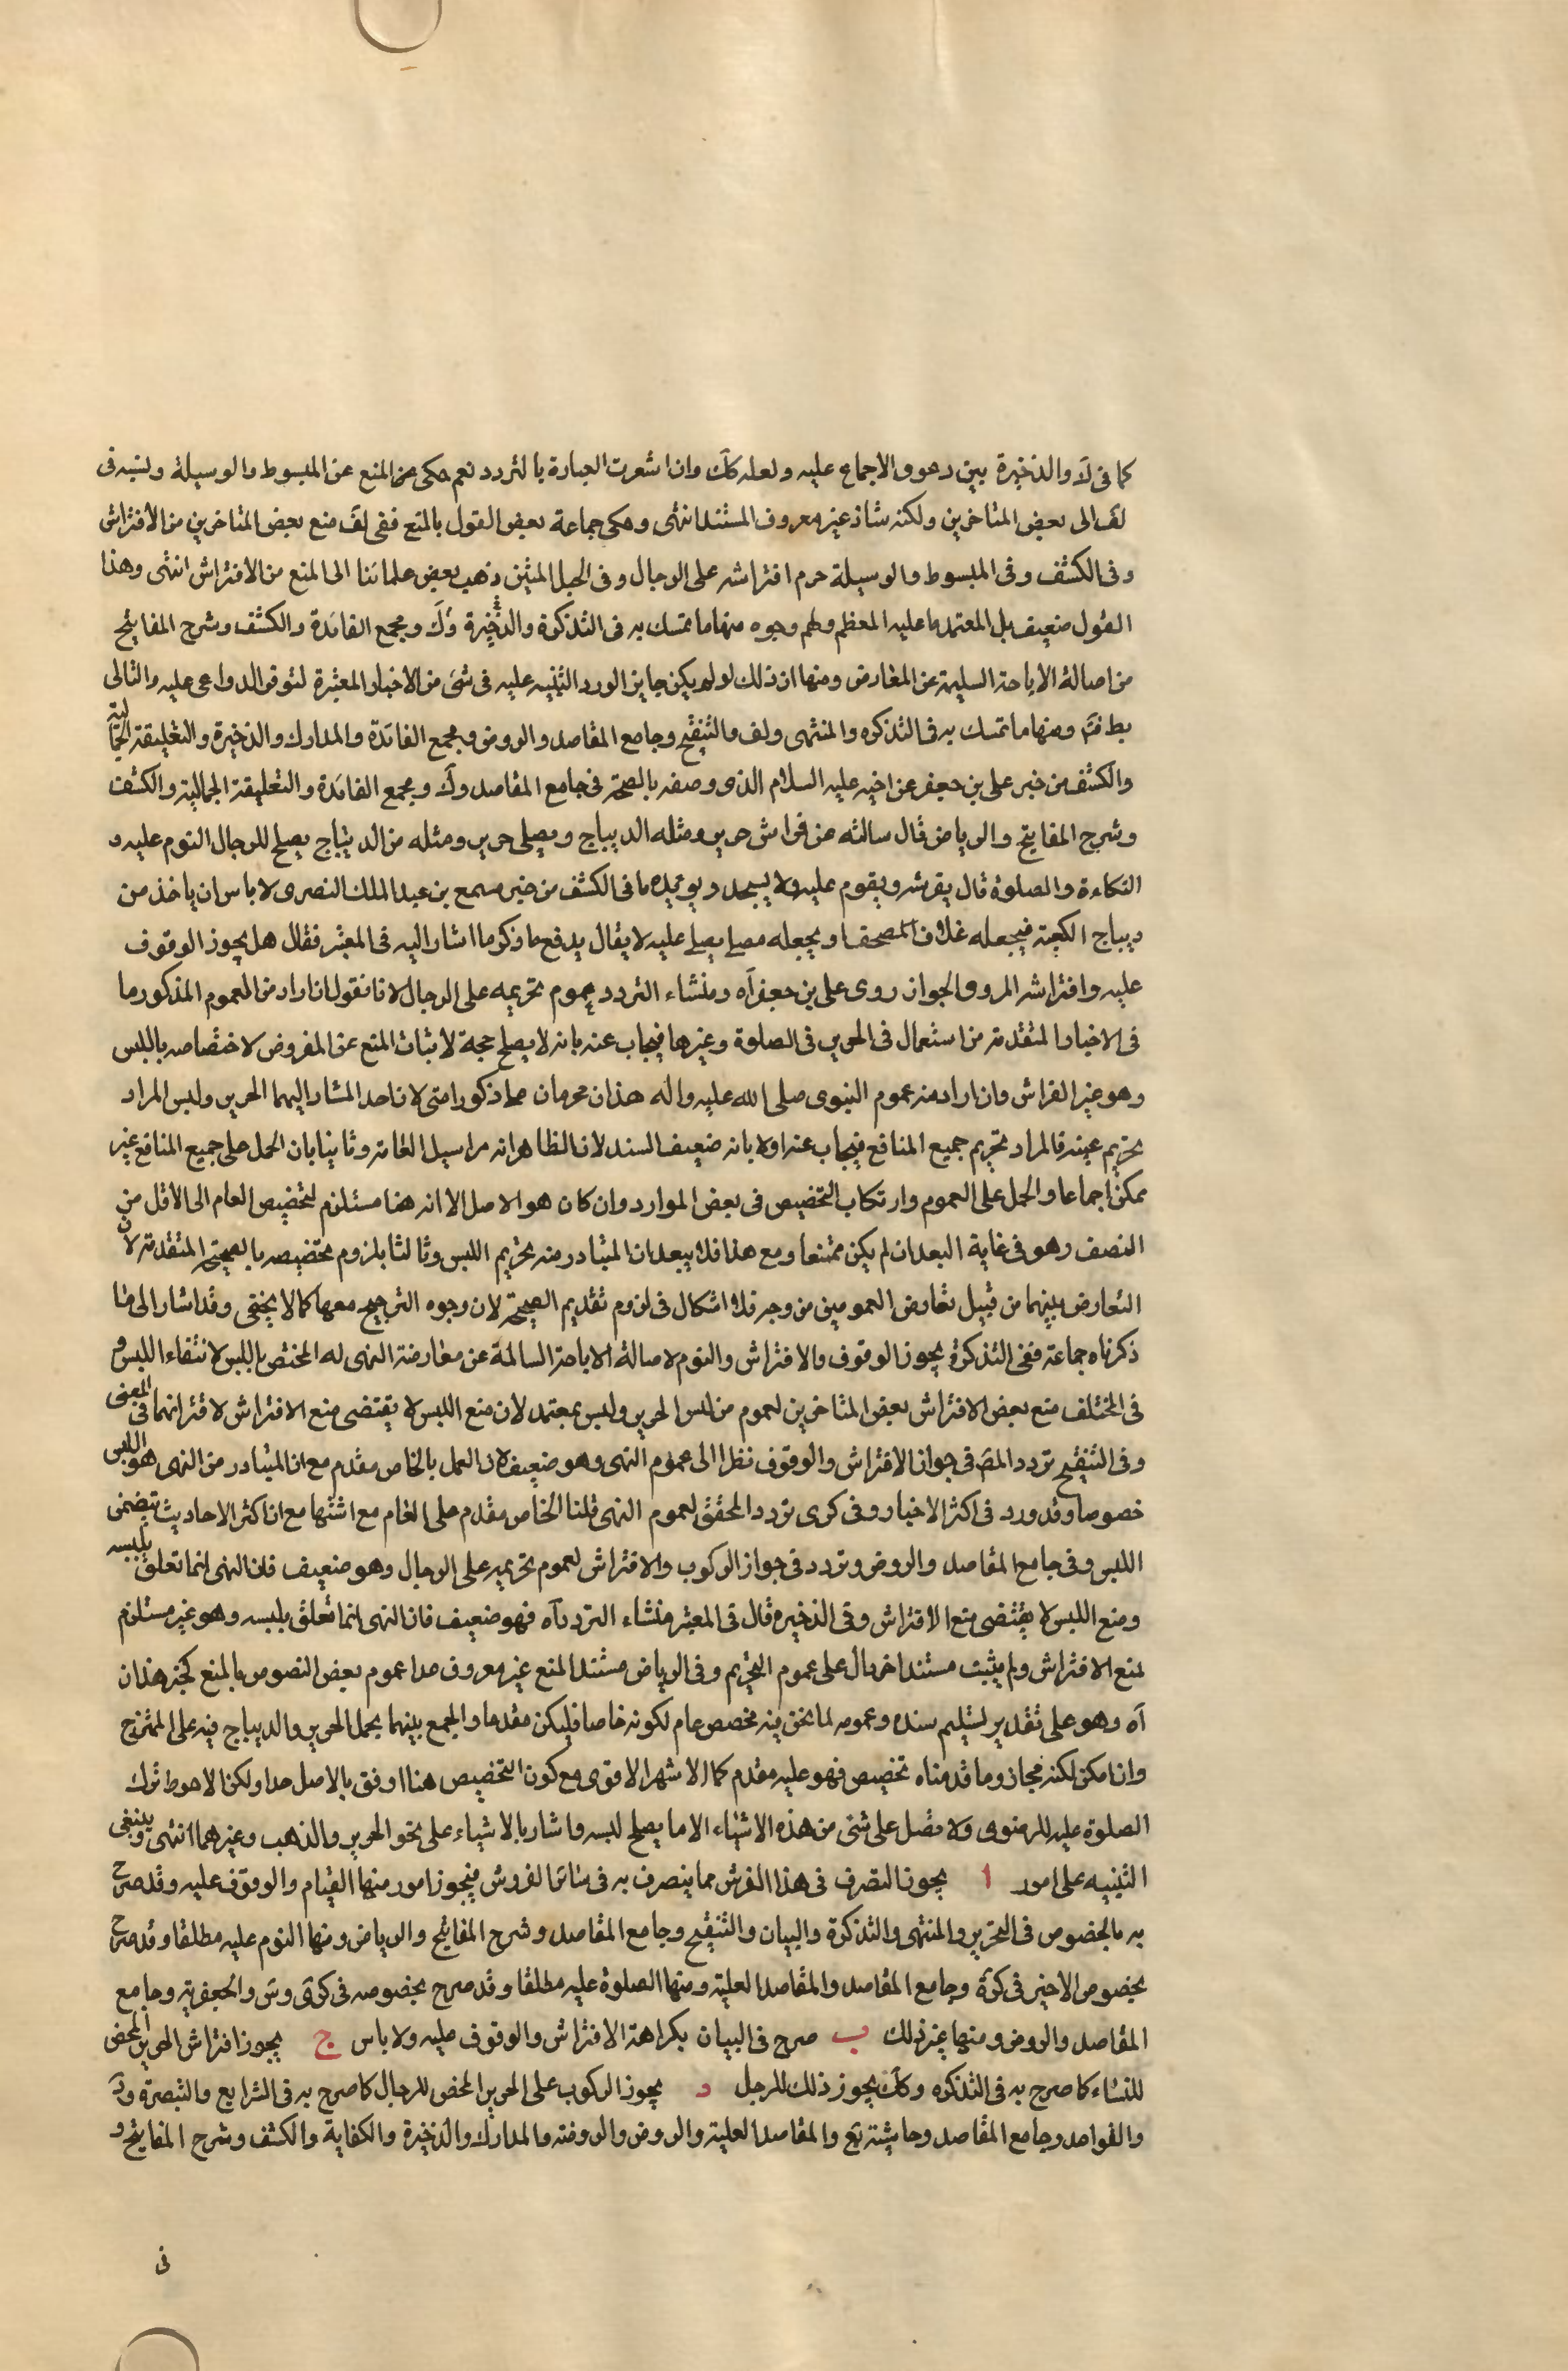 كما فى لك والذخيرة بين دعوى الاجماع عليه ولعله كك وان اشعرت العبارة بالتردد نعم حكى عن المنع عن المبسوط والوسيلة ونسبه فى
لف الى بعض المتاخرين ولكنه شاذ غير معروف المستند انتهى وحكى جماعة بعض القول بالمنع ففى لف منع بعض المتاخرين من الافتراش
وفى الكشف وفى المبسوط والوسيلة حرم افتراشه على الرجال وفى الحبل المتين ذهب بعض علمائنا الى المنع من الافتراش انتهى وهذا
القول ضعيف بل المعتمد ما عليه المعظم ولهم وجوه منها ما تمسك به فى التذكرة والذخيرة وك ومجمع الفائدة والكشف وشرح المفاتيح
من اصالة الاباحة السليمة عن المعارض ومنها ان ذلك لو لم يكن جايزا لورد التنبيه عليه فى شئ من الاخبار المعتبرة لتوفر الدواعى عليه والتالى
بط فتم ومنها ما تمسك به فى التذكره والمنتهى ولف والتنقيح وجامع المقاصد والروض ومجمع الفائدة والمدارك والذخيرة والتعليقة الجمالية
والكشف من خبر على بن جعفر عن اخيه عليه السلام الذى وصفه بالصحة فى جامع المقاصد وك ومجمع الفائدة والتعليقة الجمالية والكشف
وشرح المفاتيح والرياض قال سالته عن فراش حرير ومثله الديباج ومصلى حرير ومثله من الديباج يصلح للرجال النوم عليه و
التكاءة والصلوة قال يفرشه ويقوم عليه ولا يسجد ويؤيده ما فى الكشف من خبر مسمع بن عبد الملك النصرى لا باس ان ياخذ من
ديباج الكعبة فيجعله غلاف المصحف او يجعله مصلى يصلى عليه لا يقال يدفع ما ذكر ما اشار اليه فى المعتبر فقال هل يجوز الوقوف
عليه وافتراشه المروى الجواز روى على بن جعفر آه ومنشاء التردد عموم تحريمه على الرجال لانا نقول ان اراد من العموم المذكور ما
فى الاخبار المتقدمة من استعمال فى الحرير فى الصلوة وغيرها فيجاب عنه بانه لا يصلح حجة لاثبات المنع عن المفروض لاختصاصه باللبس
وهو غير الفراش وان اراد منه عموم النبوى صلى الله عليه واله هذان محرمان على ذكور امتى لان احد المشار اليهما الحرير وليس المراد
تحريم عينه فالمراد تحريم جميع المنافع فيجاب عنه اولا بانه ضعيف السند لان الظاهر انه مراسيل العامة وثانيا بان الحمل على جميع المنافع غير
ممكن اجماعا والحمل على العموم وارتكاب التخصيص فى بعض الموارد وان كان هو الاصل الا انه هنا مستلزم لتخصيص العام الى الاقل من
النصف وهو فى غاية البعد ان لم يكن ممتنعا ومع هذا فلا يبعد ان المتبادر منه تحريم اللبس وثالثا بلزوم تخصيصه بالصحيحة المتقدمة لان
التعارض بينهما من قبيل تعارض العمومين من وجه فلا اشكال فى لزوم تقديم الصحيحة لان وجوه الترجيح معها كما لا يخفى وقد اشار الى ما
ذكرناه جماعة ففى التذكرة يجوز الوقوف والافتراش والنوم لاصالة الاباحة السالمة عن معارضة النهى له المختص باللبس لانتفاء اللبس و
فى المختلف منع بعض الافتراش بعض المتاخرين لعموم من لبس الحرير وليس بمعتمد لان منع اللبس لا يقتضى منع الافتراش لافتراقهما فى المعنى
وفى التنقيح تردد المصنف فى جواز الافتراش والوقوف نظرا الى عموم النهى وهو ضعيف لان العمل بالخاص مقدم مع ان المتبادر من النهى هو اللبس
خصوصا وقد ورد فى اكثر الاخبار وفى كرى تردد المحقق لعموم النهى قلنا الخاص مقدم على العام مع اشتها مع ان اكثر الاحاديث يتضمن
اللبس وفى جامع المقاصد والروض وتردد فى جواز الركوب والافتراش لعموم تحريمه على الرجال وهو ضعيف فان النهى انما تعلق بلبسه
ومنع اللبس لا يقتضى منع الافتراش وفى الذخيره قال فى المعتبر منشاء التردد آه فهو ضعيف فان النهى انما تعلق بلبسه وهو غير مستلزم
لمنع الافتراش ولم يثبت مستند اخر دال على عموم التحريم وفى الرياض مستند المنع غير معروف عدا عموم بعض النصوص بالمنع كخبر هذان
آه وهو على تقدير تسليم سنده وعمومه لما نحن فيه مخصص عام لكونه خاصا فليكن مقدما والجمع بينهما بحمل الحرير والديباج فيه على الممتزج
وان امكن لكنه مجاز وما قدمناه تخصيص فهو عليه مقدم كما الاشهر الاقوى مع كون التخصيص هنا اوفق بالاصل جدا ولكن الاحوط ترك
الصلوة عليه للرضوى ولا تصل على شئ من هذه الاشياء الا ما يصلح لبسه واشار بالاشياء على نحو الحرير والذهب وغيرهما انتهى وينبغى
التنبيه على امور ا يجوز التصرف فى هذا الفرش مما يتصرف به فى سائر الفروش فيجوز امور منها القيام والوقوف عليه وقد صرح
به بالخصوص فى التحرير والمنتهى والتذكرة والبيان والتنقيح وجامع المقاصد وشرح المفاتيح والرياض ومنها النوم عليه مطلقا وقد صرح
بخصوص الاخير فى كرة وجامع المقاصد والمقاصد العلية ومنها الصلوة عليه مطلقا وقد صرح بخصوصه فى كرى وس والجعفرية وجامع
المقاصد والروض ومنها غير ذلك ب صرح فى البيان بكراهة الافتراش والوقوف عليه ولا باس ج يجوز افتراش الحرير المحض
للنساء كما صرح به فى التذكره وكك يجوز ذلك للرجل د يجوز الركوب على الحرير المحض للرجال كما صرح به فى الشرايع والتبصرة ود
والقواعد وجامع المقاصد وحاشية يع والمقاصد العلية والروض والروضة والمدارك والذخيرة والكفاية والكشف وشرح المفاتيح و
فى